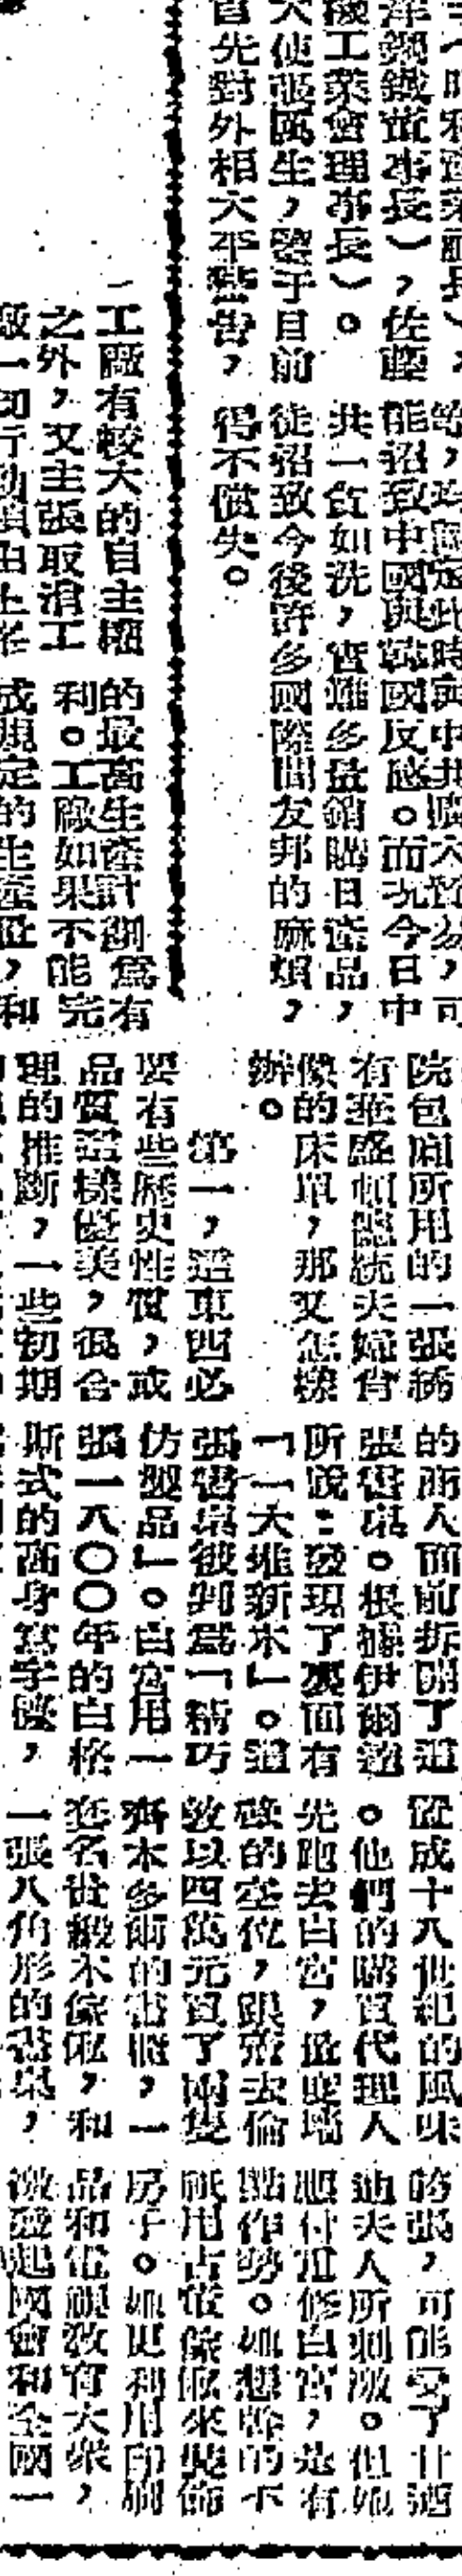 洋鋼鐵董事長），佐藤
機工業會理事長）。
大使張厲生，鑒于目前
首先對外相大平警告，
等，均認定此時與中共擴大貿易，可
能招致中國與韓國反感。而况今日中
共一貧如洗，實難多量銷購日產品，
徒招致今後許多國際間友邦的麻煩，
得不償失。
工廠有較大的自主權
之外，又主張取消工
廠一切行動須由上峯
的最高生產計劃爲有
利。工廠如果不能完
成規定的生產量，和
院包廂所用的一張綉
有華盛頓總統夫婦肖
像的床單，那又怎樣
辦。
第一，這東西必
要有些歷史性質，或
品質這樣優美，很合
理的推斷，一些初期
的商人面前拆開了這
張書桌。根據伊爾遜
所說：發現了裏面有
「一大堆新木」。這
張書桌被判爲「精巧
仿製品」。白宮用一
張一八〇〇年的白格
斯式的高身寫字檯，
置成十八世紀的風味
。他們的購買代理人
先跑去白宮，量度墻
壁的空位，跟着去倫
敦以四萬元買了兩隻
齊本多爾的書橱，一
套名貴緞木傢俬，和
一張八角形的書桌，
誇張，可能受了甘迺
迪夫人所刺激。但她
應付重修白宮，是有
點作勢。她想幹的不
祇用古董傢俬來裝飾
房子。她更利用印刷
品和電視教育大衆，
激發起國會和全國一